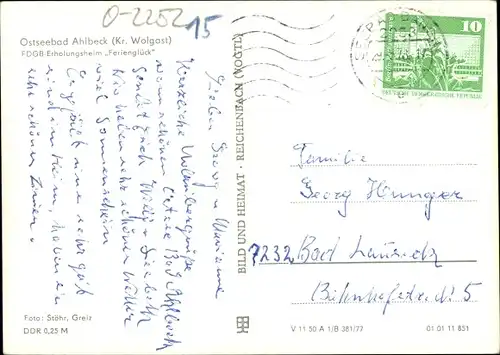 O-2252
15
Ostseebad Ahlbeck (Kr. Wolgast)
FDGB-Erholungsheim „Ferienglück"
Lieber Georg u Marianne
Herzliche Urlaubergrüße
vom schönen Ostsee Bad Ahlbeck
sendet Euch
Wir haben sehr schönes Wetter
viel Sonnenschein
Es gefällt uns sehr gut
sind im Heim, haben ein
sehr schönes Zimmer.
Foto: Stöhr, Greiz
DDR 0,25 M
BILD UND HEIMAT · REICHENBACH (VOGTL)
10
DEUTSCHE DEMOKRATISCHE REPUBLIK
Familie
Georg Hunger
7232 Bad Lausick
Bahnhofstr. 5
V 11 50 A 1/B 381/77
01 01 11 851